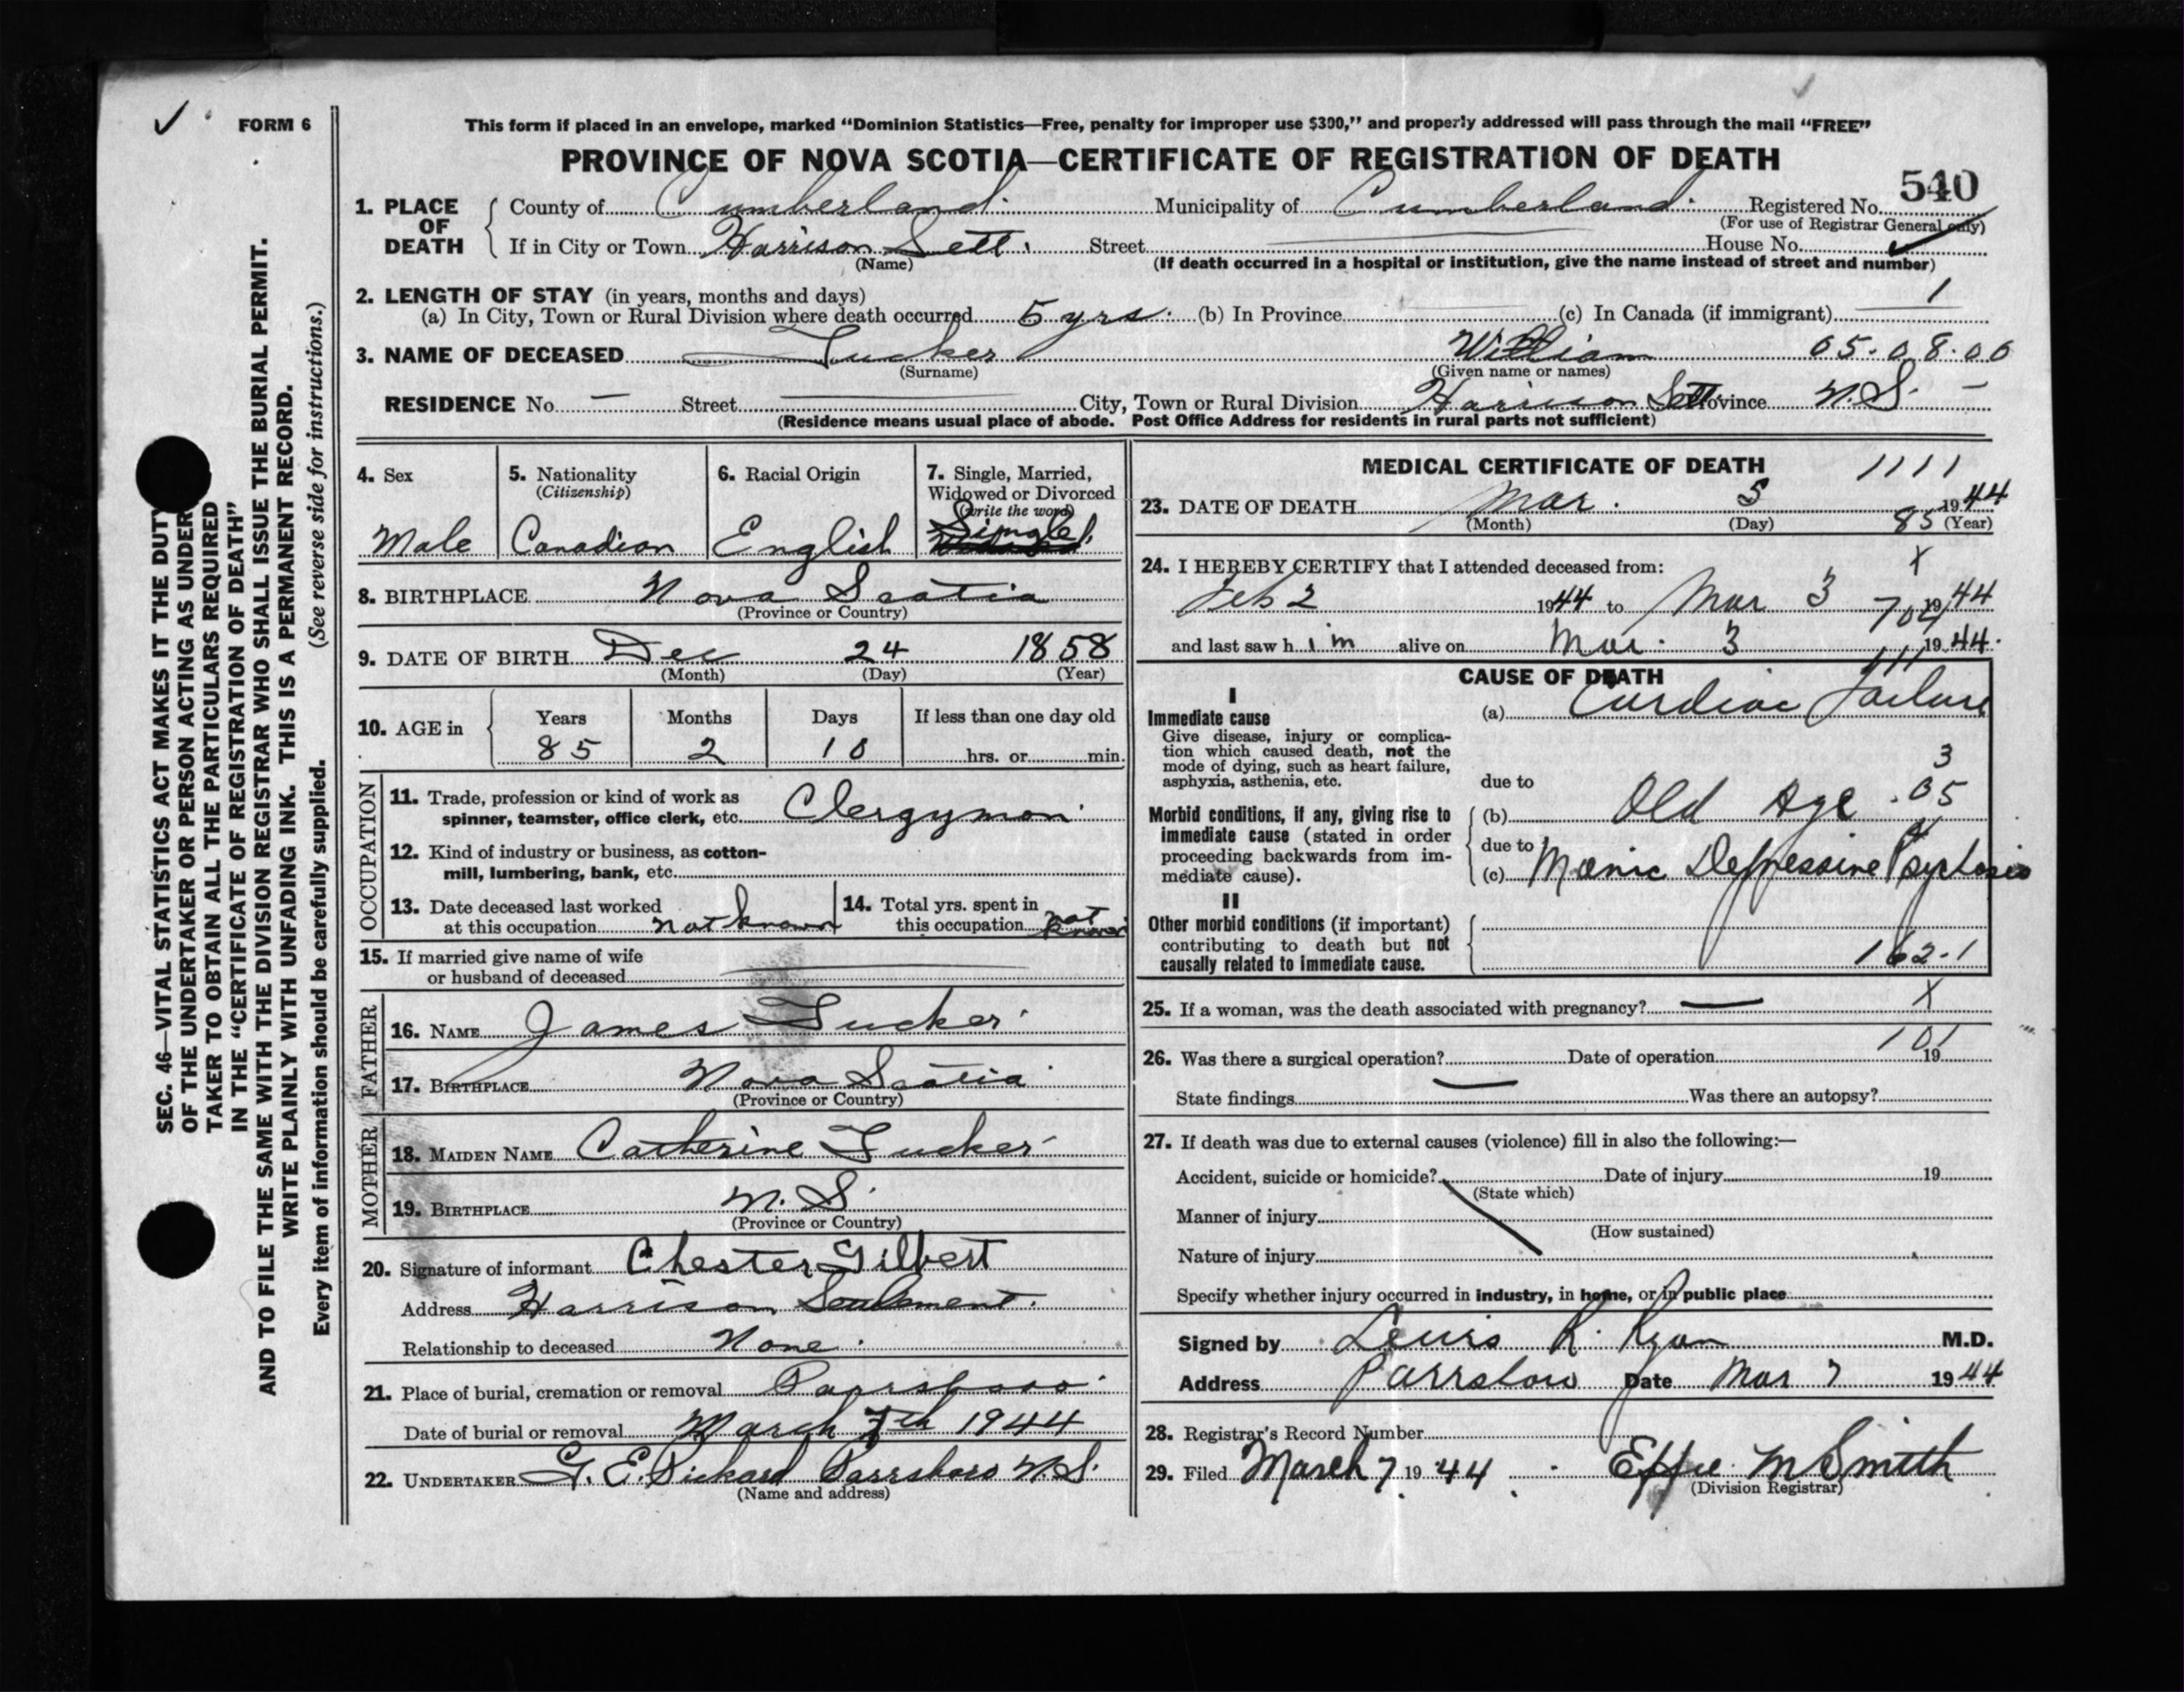 FORM 6
This form if placed in an envelope, marked “Dominion Statistics—Free, penalty for improper use $300,” and properly addressed will pass through the mail “FREE”
PROVINCE OF NOVA SCOTIA—CERTIFICATE OF REGISTRATION OF DEATH
540
1. PLACE OF DEATH County of Cumberland. Municipality of Cumberland. Registered No.
(For use of Registrar General only)
If in City or Town Harrison Sett. Street House No.
(Name) (If death occurred in a hospital or institution, give the name instead of street and number)
2. LENGTH OF STAY (in years, months and days) 1
(a) In City, Town or Rural Division where death occurred 5 yrs. (b) In Province (c) In Canada (if immigrant)
3. NAME OF DECEASED Tucker William 05.08.00
(Surname) (Given name or names)
RESIDENCE No. — Street City, Town or Rural Division Harrison Sett. Province N.S. —
(Residence means usual place of abode. Post Office Address for residents in rural parts not sufficient)
SEC. 46—VITAL STATISTICS ACT MAKES IT THE DUTY
OF THE UNDERTAKER OR PERSON ACTING AS UNDER
TAKER TO OBTAIN ALL THE PARTICULARS REQUIRED
IN THE “CERTIFICATE OF REGISTRATION OF DEATH”
AND TO FILE THE SAME WITH THE DIVISION REGISTRAR WHO SHALL ISSUE THE BURIAL PERMIT.
WRITE PLAINLY WITH UNFADING INK. THIS IS A PERMANENT RECORD.
Every item of information should be carefully supplied. (See reverse side for instructions.)
4. Sex
Male
5. Nationality
(Citizenship)
Canadian
6. Racial Origin
English
7. Single, Married,
Widowed or Divorced
(write the word)
Single.
8. BIRTHPLACE Nova Scotia
(Province or Country)
9. DATE OF BIRTH Dec 24 1858
(Month) (Day) (Year)
10. AGE in Years Months Days If less than one day old
85 2 10 hrs. or min.
OCCUPATION
11. Trade, profession or kind of work as
spinner, teamster, office clerk, etc. Clergyman
12. Kind of industry or business, as cotton-
mill, lumbering, bank, etc.
13. Date deceased last worked
at this occupation not known
14. Total yrs. spent in
this occupation not known
15. If married give name of wife
or husband of deceased
FATHER
16. NAME James Tucker
17. BIRTHPLACE Nova Scotia
(Province or Country)
MOTHER
18. MAIDEN NAME Catherine Tucker
19. BIRTHPLACE N.S.
(Province or Country)
20. Signature of informant Chester Gilbert
Address Harrison Settlement.
Relationship to deceased None.
21. Place of burial, cremation or removal Parrsboro
Date of burial or removal March 7th 1944
22. UNDERTAKER G. E. Rickard Parrsboro N.S.
(Name and address)
MEDICAL CERTIFICATE OF DEATH 1111
23. DATE OF DEATH Mar. 5 1944
(Month) (Day) 85 (Year)
24. I HEREBY CERTIFY that I attended deceased from: X
Feb 2 1944 to Mar 3 1944
704
and last saw h im alive on Mar. 3 1944.
111
CAUSE OF DEATH
I
Immediate cause
Give disease, injury or complica-
tion which caused death, not the
mode of dying, such as heart failure,
asphyxia, asthenia, etc.
(a) Cardiac Failure
3
due to
Morbid conditions, if any, giving rise to
immediate cause (stated in order
proceeding backwards from im-
mediate cause).
(b) Old Age .05
due to
(c) Manic Depressive Psychosis
II
Other morbid conditions (if important)
contributing to death but not
causally related to immediate cause.
162-1
25. If a woman, was the death associated with pregnancy? — X
101
26. Was there a surgical operation? Date of operation 19
State findings — Was there an autopsy?
27. If death was due to external causes (violence) fill in also the following:—
Accident, suicide or homicide? Date of injury 19
(State which)
Manner of injury
(How sustained)
Nature of injury
Specify whether injury occurred in industry, in home, or in public place
Signed by Lewis R. Ryan M.D.
Address Parrsboro Date Mar 7 1944
28. Registrar's Record Number
29. Filed March 7 1944 Effie M Smith
(Division Registrar)